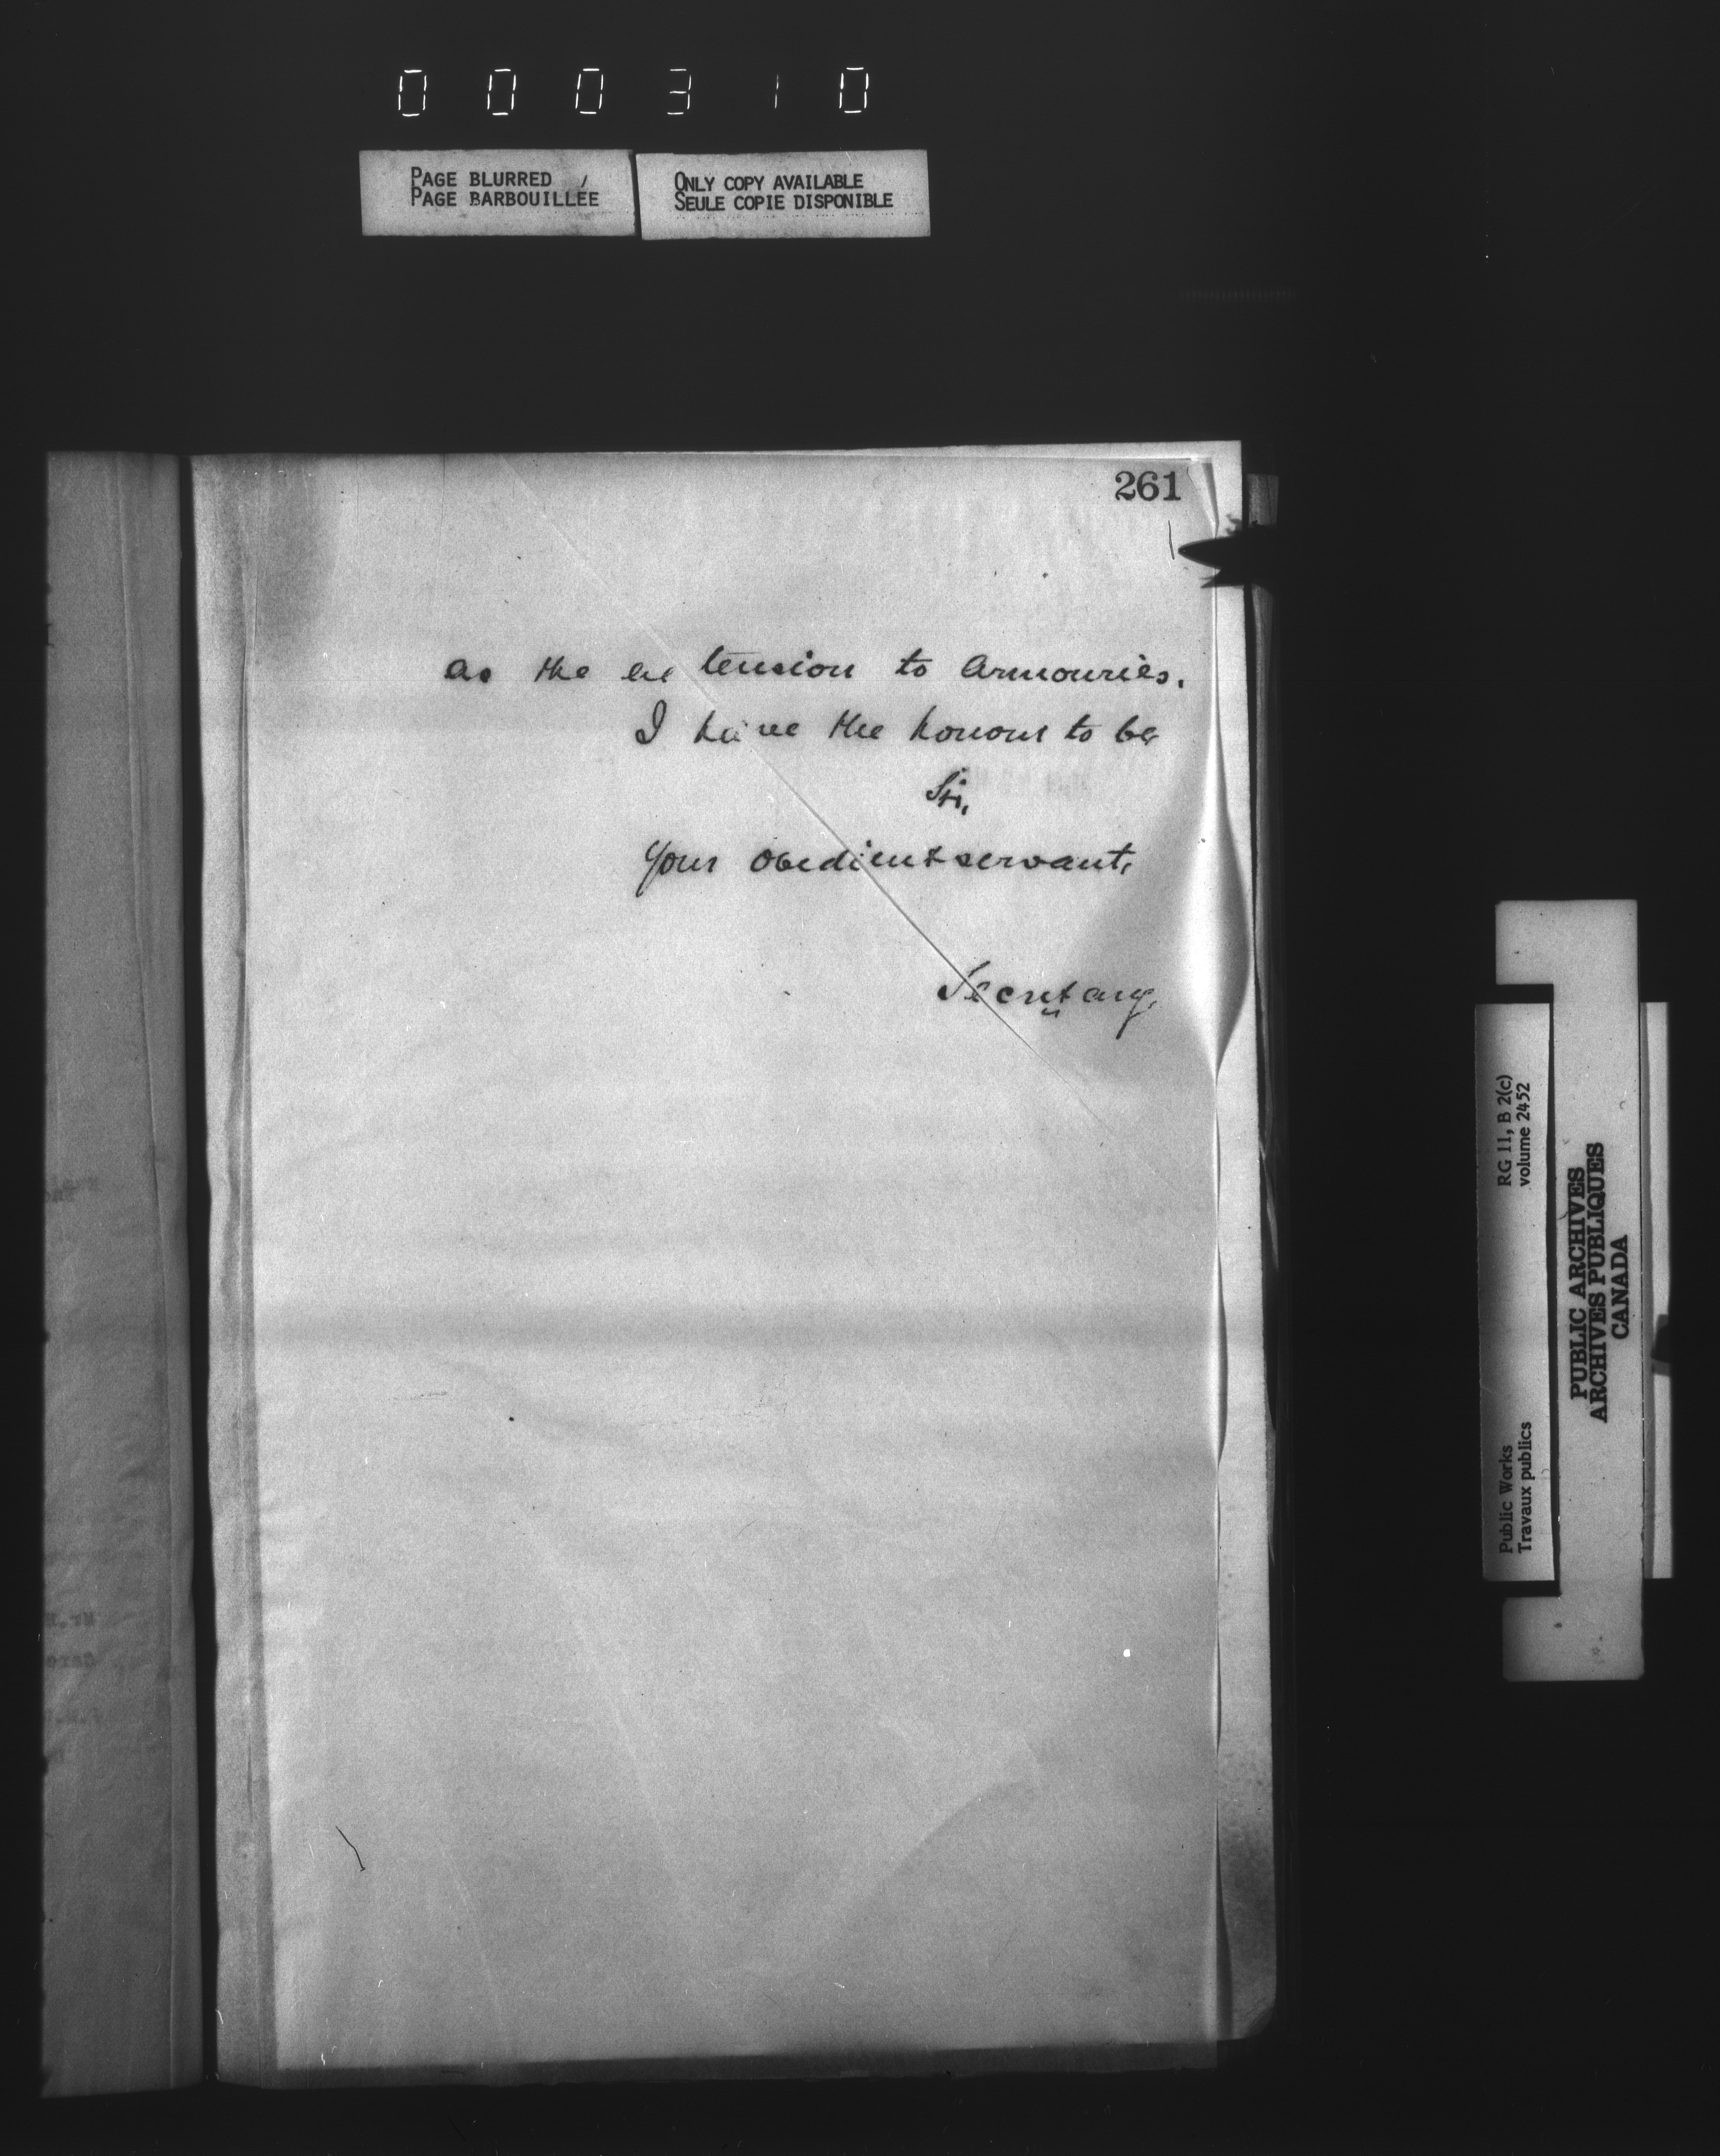 000310
PAGE BLURRED
PAGE BARBOUILLÉE
ONLY COPY AVAILABLE
SEULE COPIE DISPONIBLE
261
as the extension to Armouries.
I have the honour to be
Sir,
Your obedient servant,
Secretary.
RG 11, B 2(c)
volume 2452
Public Works
Travaux publics
PUBLIC ARCHIVES
ARCHIVES PUBLIQUES
CANADA